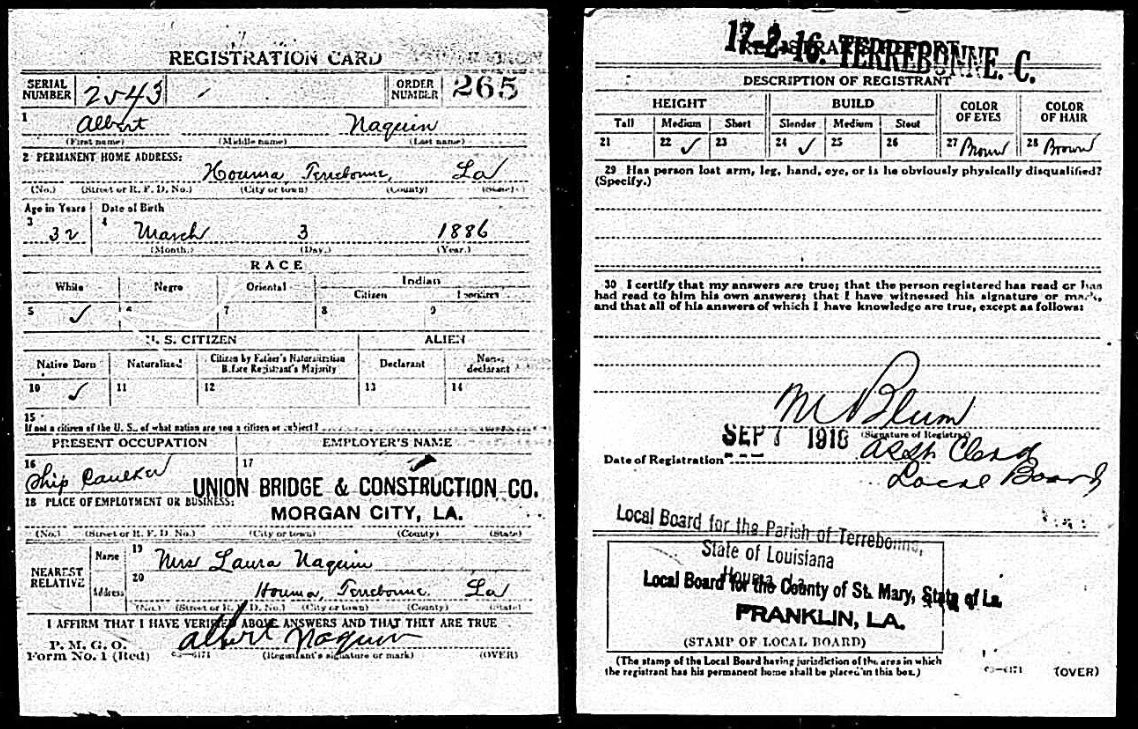 REGISTRATION CARD
SERIAL NUMBER 2543
ORDER NUMBER 265
1 Albert Naquin
(First name) (Middle name) (Last name)
2 PERMANENT HOME ADDRESS:
Houma, Terrebonne, La
(No.) (Street or R. F. D. No.) (City or town) (County) (State)
Age in Years Date of Birth
3 32 4 March 3 1886
(Month.) (Day.) (Year.)
RACE
White Negro Oriental Indian
Citizen
5 ✓ 6 7 8 9
U. S. CITIZEN ALIEN
Native Born Naturalized Citizen by Father's Naturalization Before Registrant's Majority Declarant Non-declarant
10 ✓ 11 12 13 14
15
If not a citizen of the U. S., of what nation are you a citizen or subject?
PRESENT OCCUPATION EMPLOYER'S NAME
16 Ship Caulker 17
UNION BRIDGE & CONSTRUCTION CO.
18 PLACE OF EMPLOYMENT OR BUSINESS:
MORGAN CITY, LA.
(No.) (Street or R. F. D. No.) (City or town) (County) (State)
NEAREST RELATIVE
Name 19 Mrs Laura Naquin
Address 20 Houma, Terrebonne, La
(No.) (Street or R. F. D. No.) (City or town) (County) (State)
I AFFIRM THAT I HAVE VERIFIED ABOVE ANSWERS AND THAT THEY ARE TRUE
P. M. G. O.
Form No. 1 (Red)
Albert Naquin
(Registrant's signature or mark) (OVER)
17-2-16. TERREBONNE. C.
DESCRIPTION OF REGISTRANT
HEIGHT BUILD COLOR OF EYES COLOR OF HAIR
Tall Medium Short Slender Medium Stout
21 22 ✓ 23 24 ✓ 25 26 27 Brown 28 Brown
29 Has person lost arm, leg, hand, eye, or is he obviously physically disqualified?
(Specify.)
30 I certify that my answers are true; that the person registered has read or has
had read to him his own answers; that I have witnessed his signature or mark,
and that all of his answers of which I have knowledge are true, except as follows:
M Blum
(Signature of Registrar)
SEP 7 1918
Asst Clerk
Date of Registration
Local Board
Local Board for the Parish of Terrebonne,
State of Louisiana
Houma, La.
Local Board for the County of St. Mary, State of La.
FRANKLIN, LA.
(STAMP OF LOCAL BOARD)
(The stamp of the Local Board having jurisdiction of the area in which
the registrant has his permanent home shall be placed in this box.)
(OVER)